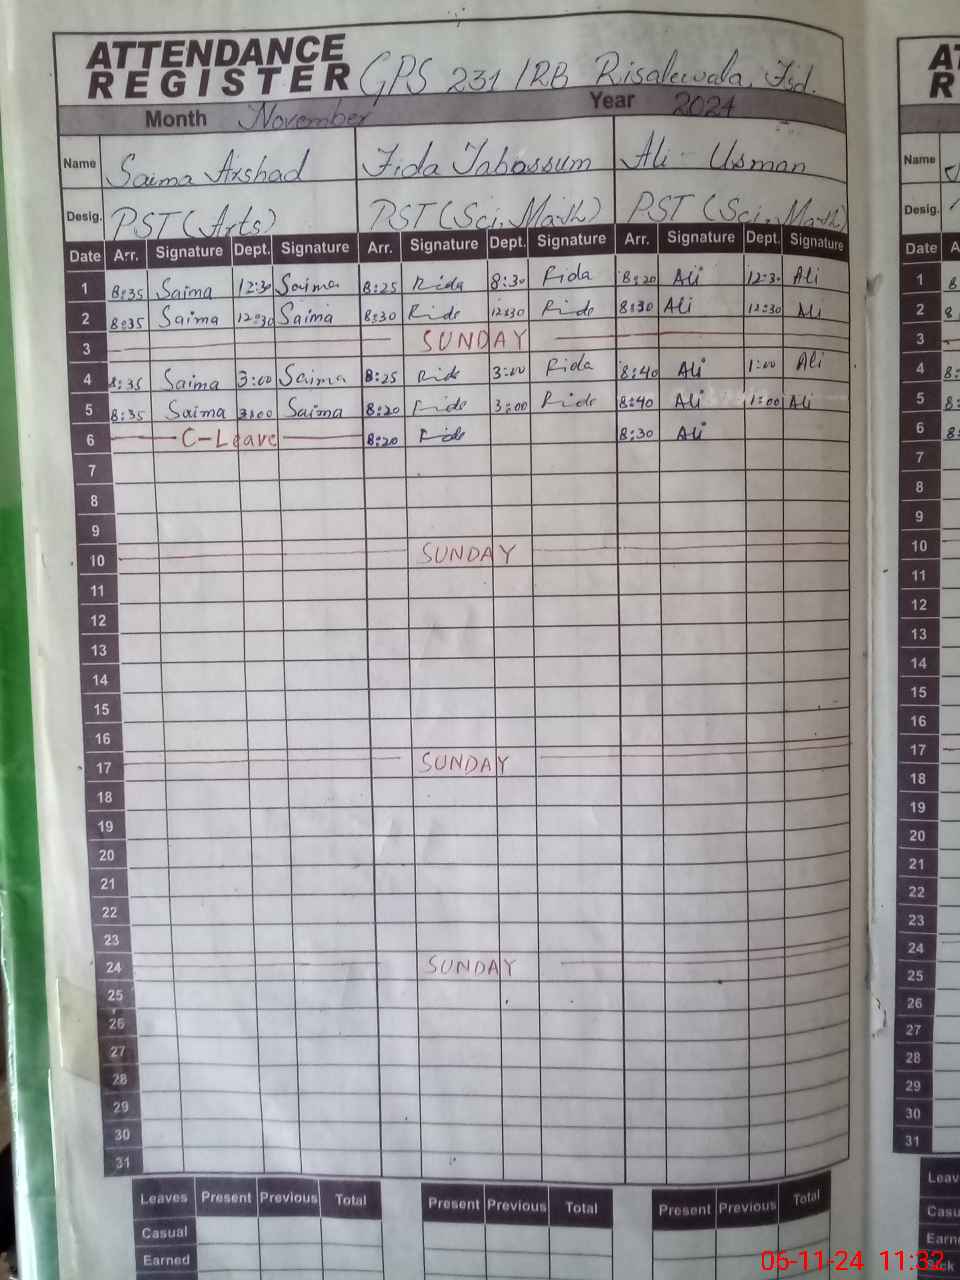 ATTENDANCE
REGISTER GPS 231 /RB Risalewala, Fsd.
Month November Year 2024
Name Saima Arshad Fida Tabassum Ali Usman
Desig. PST (Arts) PST (Sci. Math) PST (Sci. Math)
Date Arr. Signature Dept. Signature Arr. Signature Dept. Signature Arr. Signature Dept. Signature
1 8:35 Saima 12:30 Saima 8:25 Fida 8:30 Fida 8:20 Ali 12:30 Ali
2 8:35 Saima 12:30 Saima 8:30 Fida 12:30 Fida 8:30 Ali 12:30 Ali
3 SUNDAY
4 8:35 Saima 3:00 Saima 8:25 Fida 3:00 Fida 8:40 Ali 1:00 Ali
5 8:35 Saima 3:00 Saima 8:20 Fida 3:00 Fida 8:40 Ali 1:00 Ali
6 C-Leave 8:20 Fida 8:30 Ali
7
8
9
10 SUNDAY
11
12
13
14
15
16
17 SUNDAY
18
19
20
21
22
23
24 SUNDAY
25
26
27
28
29
30
31
Leaves Present Previous Total Present Previous Total Present Previous Total
Casual
Earned
Name
Desig.
Date
1
2
3
4
5
6
7
8
9
10
11
12
13
14
15
16
17
18
19
20
21
22
23
24
25
26
27
28
29
30
31
06-11-24 11:32